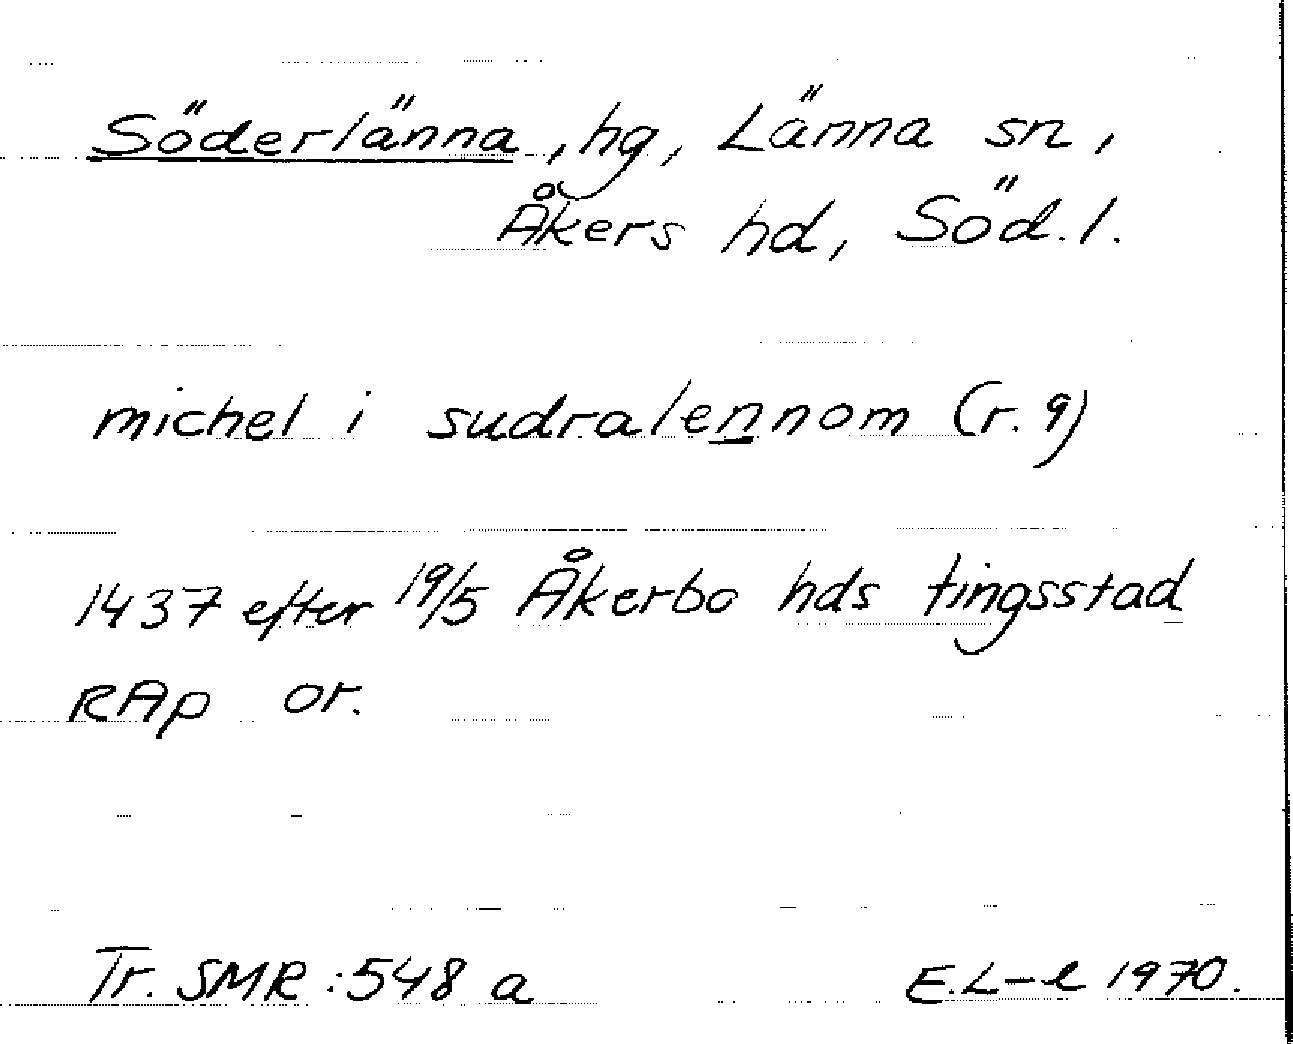 Söderlänna, hg, Länna sn,
Åkers hd, Söd.l.
michel i sudralennom (r. 9)
1437 efter 19/5 Åkerbo hds tingsstad
RAp or.
Tr. SMR :548 a E.L-l 1970.